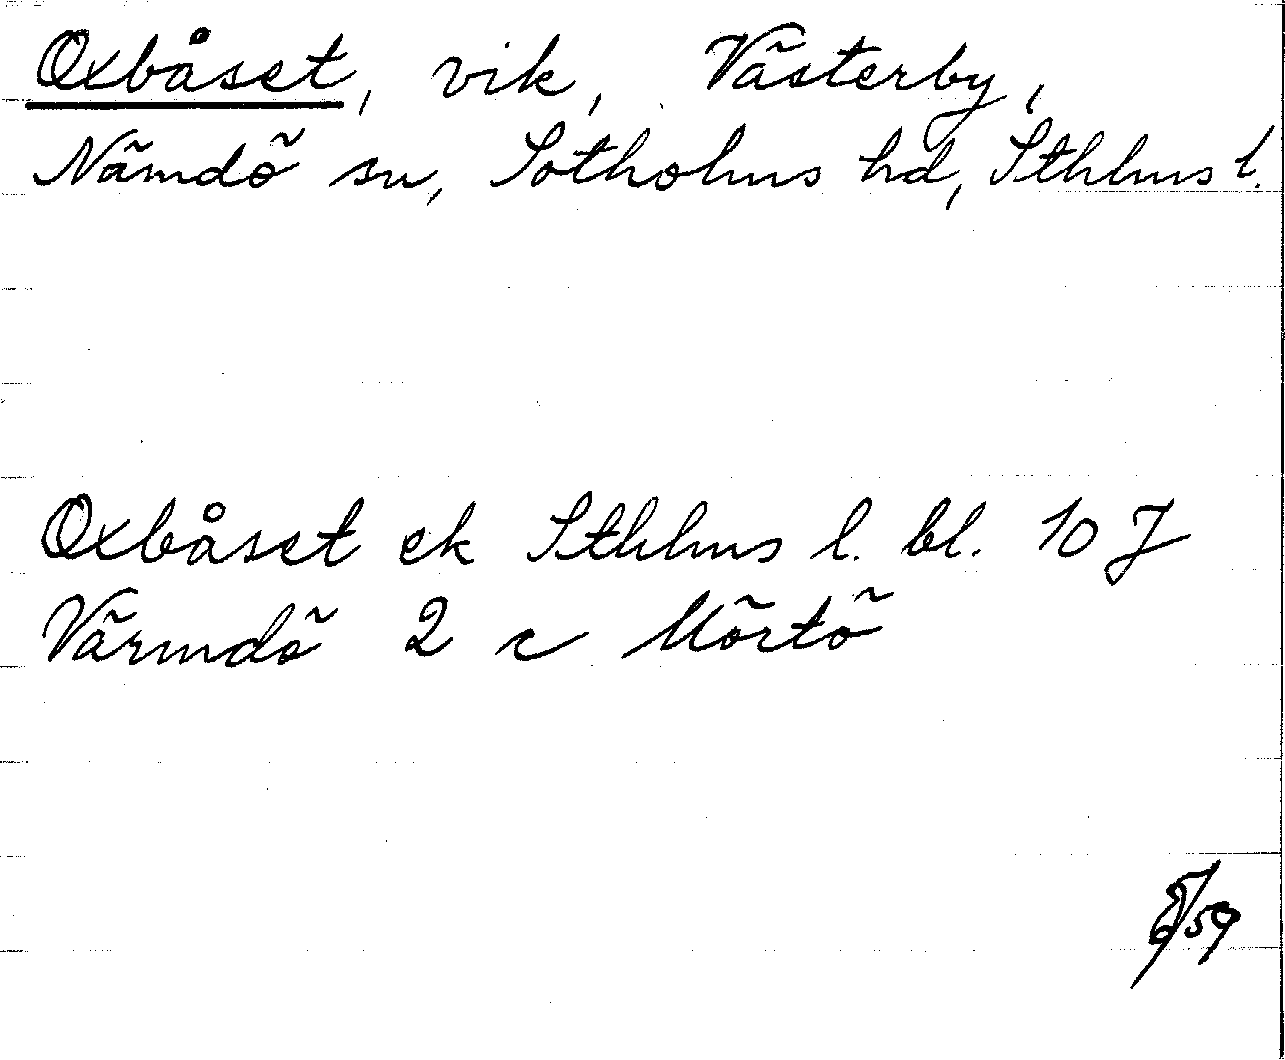 Oxbåset, vik, Västerby,
Nämdö sn, Sotholms hd, Sthlms l.
Oxbåset ek Sthlms l. bl. 10 J
Värmdö 2 c Mörtö
/59